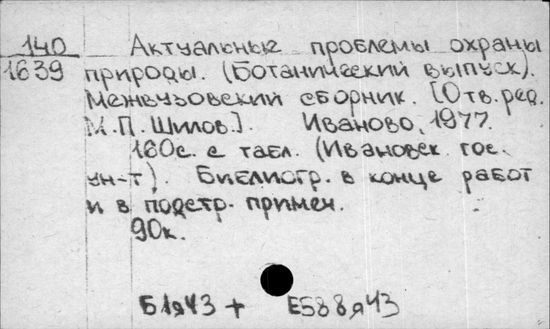 140 Актуальные проблемы охраны
1639 природы. (Ботанический выпуск).
Межвузовский сборник. [Отв. ред.
М.П. Шилов.]. Иваново, 1977.
160с. с табл. (Ивановск. гос.
ун-т). Библиогр. в конце работ
и в подстр. примеч.
90к.
Б1я43 + Е588я43